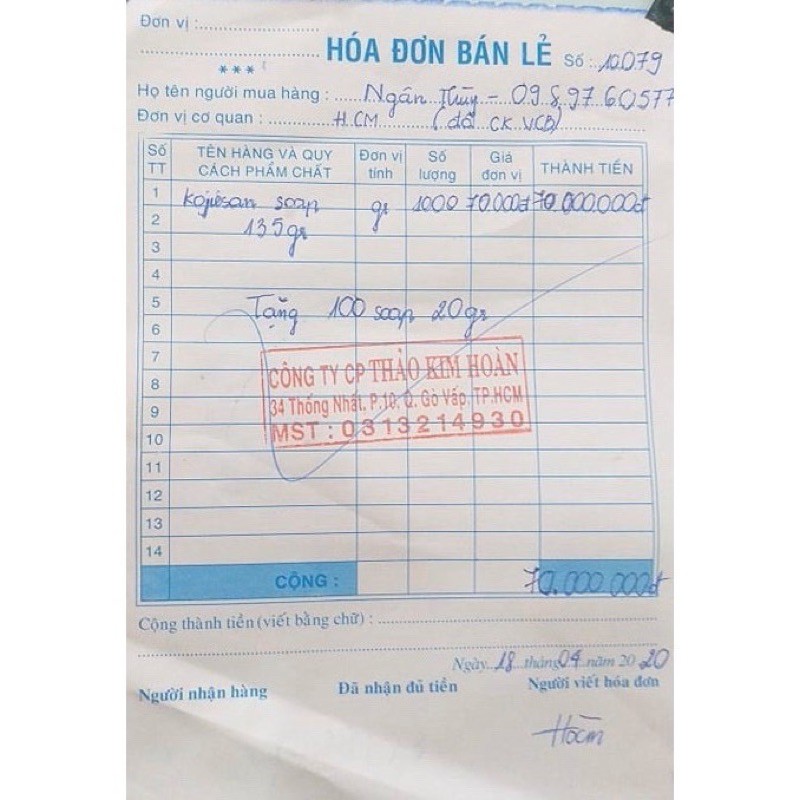 Đơn vị :
HÓA ĐƠN BÁN LẺ Số : 10079
***
Họ tên người mua hàng : Ngân Thùy - 0989760577
Đơn vị cơ quan : HCM (đã CK VCB)
Số TT TÊN HÀNG VÀ QUY CÁCH PHẨM CHẤT Đơn vị tính Số lượng Giá đơn vị THÀNH TIỀN
1 Kojiesan soap gr 1000 70.000đ 70.000.000đ
2 135gr
3
4
5 Tặng 100 soap 20gr
6
7
CÔNG TY CP THẢO KIM HOÀN
8
34 Thống Nhất, P.10, Q. Gò Vấp, TP.HCM
9
MST : 0313214930
10
11
12
13
14
CỘNG : 70.000.000đ
Cộng thành tiền (viết bằng chữ) :
Ngày 18 tháng 04 năm 2020
Người nhận hàng Đã nhận đủ tiền Người viết hóa đơn